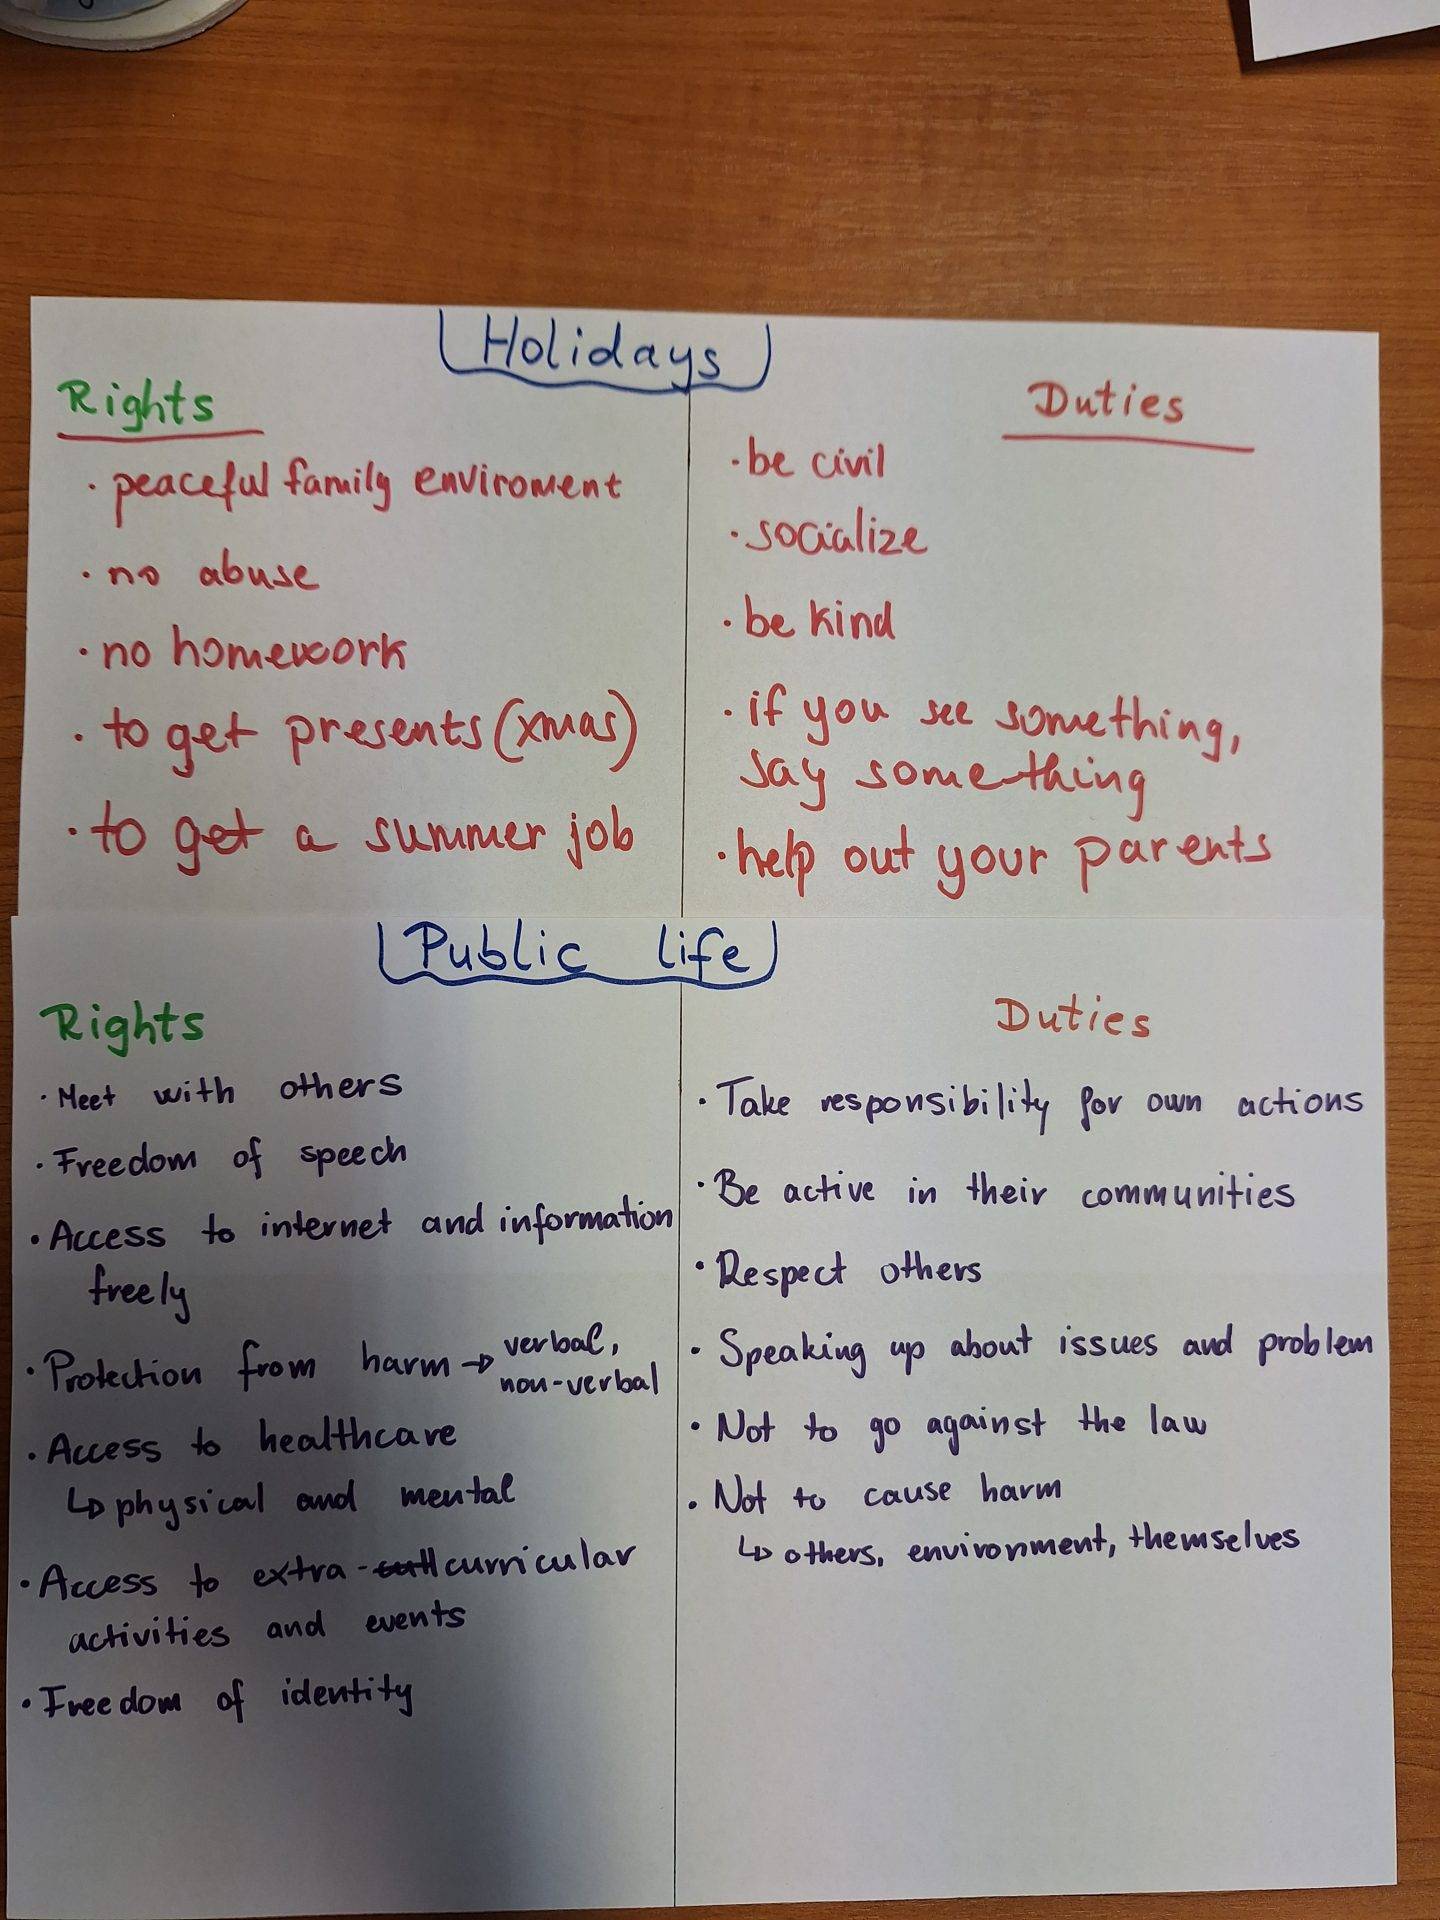 Holidays
Rights
· peaceful family enviroment
· no abuse
· no homework
· to get presents (xmas)
· to get a summer job
Duties
· be civil
· socialize
· be kind
· if you see something,
say something
· help out your parents
Public life
Rights
· Meet with others
· Freedom of speech
· Access to internet and information
freely
· Protection from harm → verbal,
non-verbal
· Access to healthcare
↳ physical and mental
· Access to extra-curricular
activities and events
· Freedom of identity
Duties
· Take responsibility for own actions
· Be active in their communities
· Respect others
· Speaking up about issues and problem
· Not to go against the law
· Not to cause harm
↳ others, environment, themselves